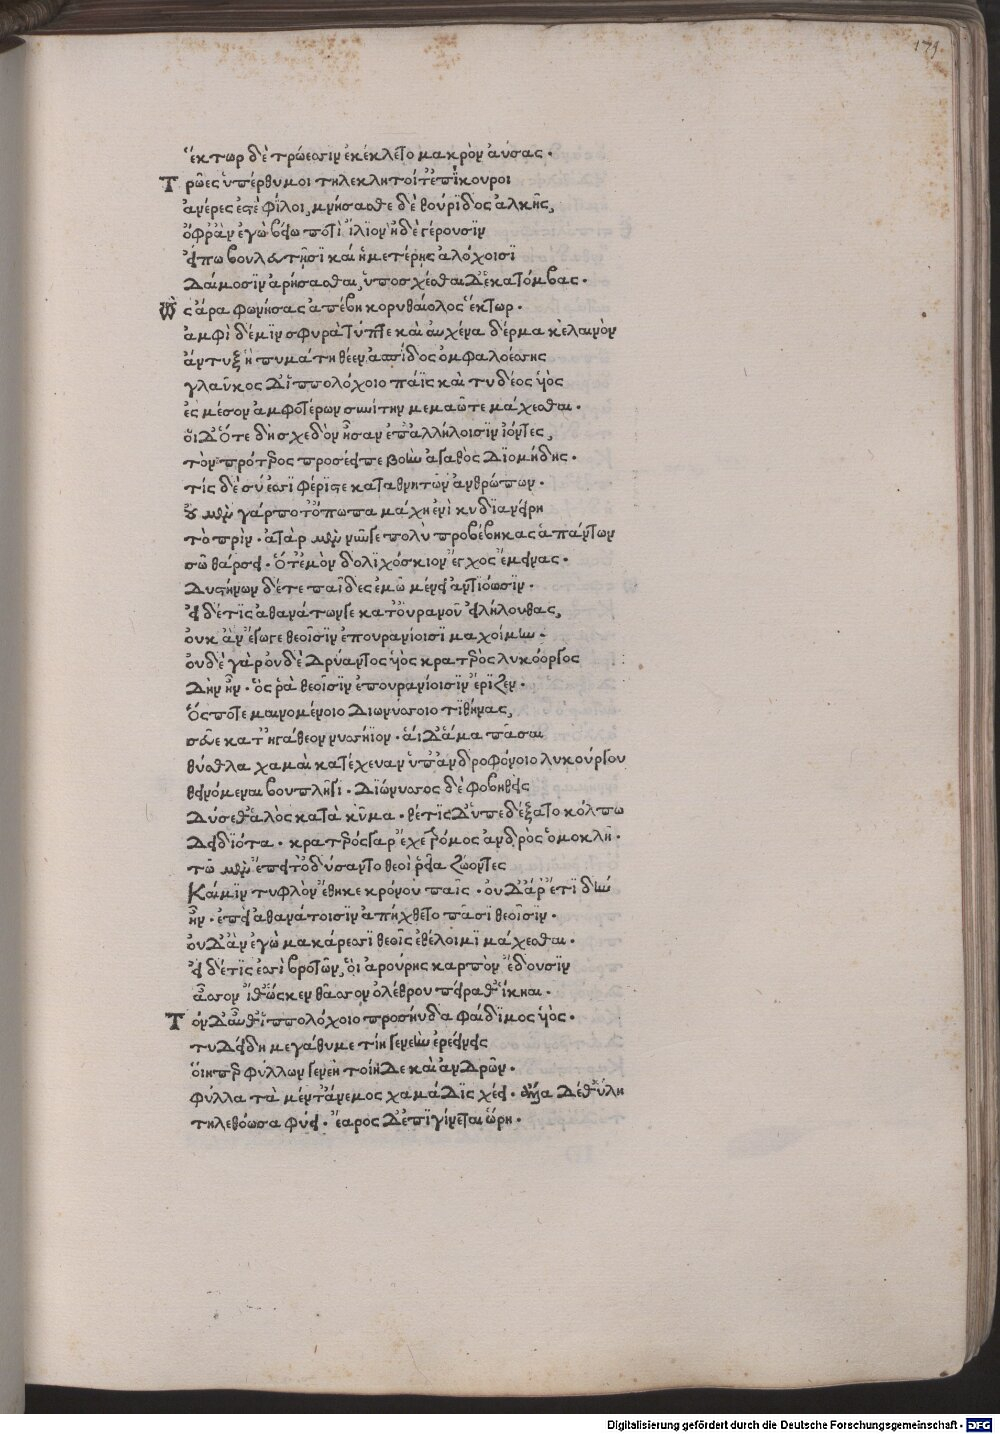 179
ἕκτωρ δὲ τρώεσσιν ἐκέκλετο μακρὸν ἀύσας.
Τρῶες ὑπέρθυμοι τηλεκλητοί τ' ἐπίκουροι
ἀνέρες ἐστὲ φίλοι, μνήσασθε δὲ θούριδος ἀλκῆς,
ὄφρ' ἂν ἐγὼ βείω ποτὶ ἴλιον ἠδὲ γέρουσιν
εἴπω βουλευτῇσι καὶ ἡμετέρης ἀλόχοισι
δαίμοσιν ἀρήσασθαι, ὑποσχέσθαι δ' ἑκατόμβας.
Ὣς ἄρα φωνήσας ἀπέβη κορυθαίολος ἕκτωρ.
ἀμφὶ δέ μιν σφυρὰ τύπτε καὶ αὐχένα δέρμα κελαινὸν
ἄντυξ ἣ πυμάτη θέεν ἀσπίδος ὀμφαλοέσσης
γλαῦκος δ' ἱππολόχοιο πάϊς καὶ τυδέος υἱὸς
ἐς μέσον ἀμφοτέρων συνίτην μεμαῶτε μάχεσθαι.
οἱ δ' ὅτε δὴ σχεδὸν ἦσαν ἐπ' ἀλλήλοισιν ἰόντες,
τὸν πρότερος προσέειπε βοὴν ἀγαθὸς διομήδης.
τίς δὲ σύ ἐσσι φέριστε καταθνητῶν ἀνθρώπων.
οὐ μὲν γάρ ποτ' ὄπωπα μάχη ἐνὶ κυδιανείρη
τὸ πρίν. ἀτὰρ μὲν νῦν γε πολὺ προβέβηκας ἁπάντων
σῶ θάρσει. ὅτ' ἐμὸν δολιχόσκιον ἔγχος ἔμεινας.
δυστήνων δέ τε παῖδες ἐμῶ μένει ἀντιόωσιν.
εἰ δέ τις ἀθανάτων γε κατ' οὐρανοῦ εἰλήλουθας,
οὐκ ἂν ἔγωγε θεοῖσιν ἐπουρανίοισι μαχοίμην.
οὐδὲ γὰρ οὐδὲ δρύαντος υἱὸς κρατερὸς λυκόοργος
δὴν ἦν. ὅς ῥὰ θεοῖσιν ἐπουρανίοισιν ἔριζεν.
Ὅς ποτε μαινομένοιο διωνύσοιο τιθήνας,
σεῦε κατ' ἠγάθεον νυσήϊον. αἱ δ' ἅμα πᾶσαι
θύσθλα χαμαὶ κατέχευαν ὑπ' ἀνδροφόνοιο λυκούργου
θεινόμεναι βουπλῆγι. διώνυσος δὲ φοβηθεὶς
δύσεθ' ἁλὸς κατὰ κῦμα. θέτις δ' ὑπεδέξατο κόλπω
δειδιότα. κρατερὸς γὰρ ἔχε τρόμος ἀνδρὸς ὁμοκλῆ.
τῶ μὲν ἔπειτ' ὀδύσαντο θεοὶ ῥεῖα ζώοντες
Καί μιν τυφλὸν ἔθηκε κρόνου παῖς. οὐδ' ἄρ' ἔτι δὴν
ἦν. ἐπεὶ ἀθανάτοισιν ἀπήχθετο πᾶσι θεοῖσιν.
οὐδ' ἂν ἐγὼ μακάρεσσι θεοῖς ἐθέλοιμι μάχεσθαι.
εἰ δέ τις ἐσσι βροτῶν, οἱ ἀρούρης καρπὸν ἔδουσιν
ἆσσον ἴθ' ὥς κεν θᾶσσον ὀλέθρου πείραθ' ἵκηαι.
Τὸν δ' αὖθ' ἱππολόχοιο προσηύδα φαίδιμος υἱός.
τυδείδη μεγάθυμε τίη γενεὴν ἐρεείνεις
οἵη περ φύλλων γενεὴ τοίη δε καὶ ἀνδρῶν.
φύλλα τὰ μέν τ' ἄνεμος χαμάδις χέει. ἄλλα δέ θ' ὕλη
τηλεθόωσα φύει. ἔαρος δ' ἐπιγίνεται ὥρη.
Digitalisierung gefördert durch die Deutsche Forschungsgemeinschaft - DFG